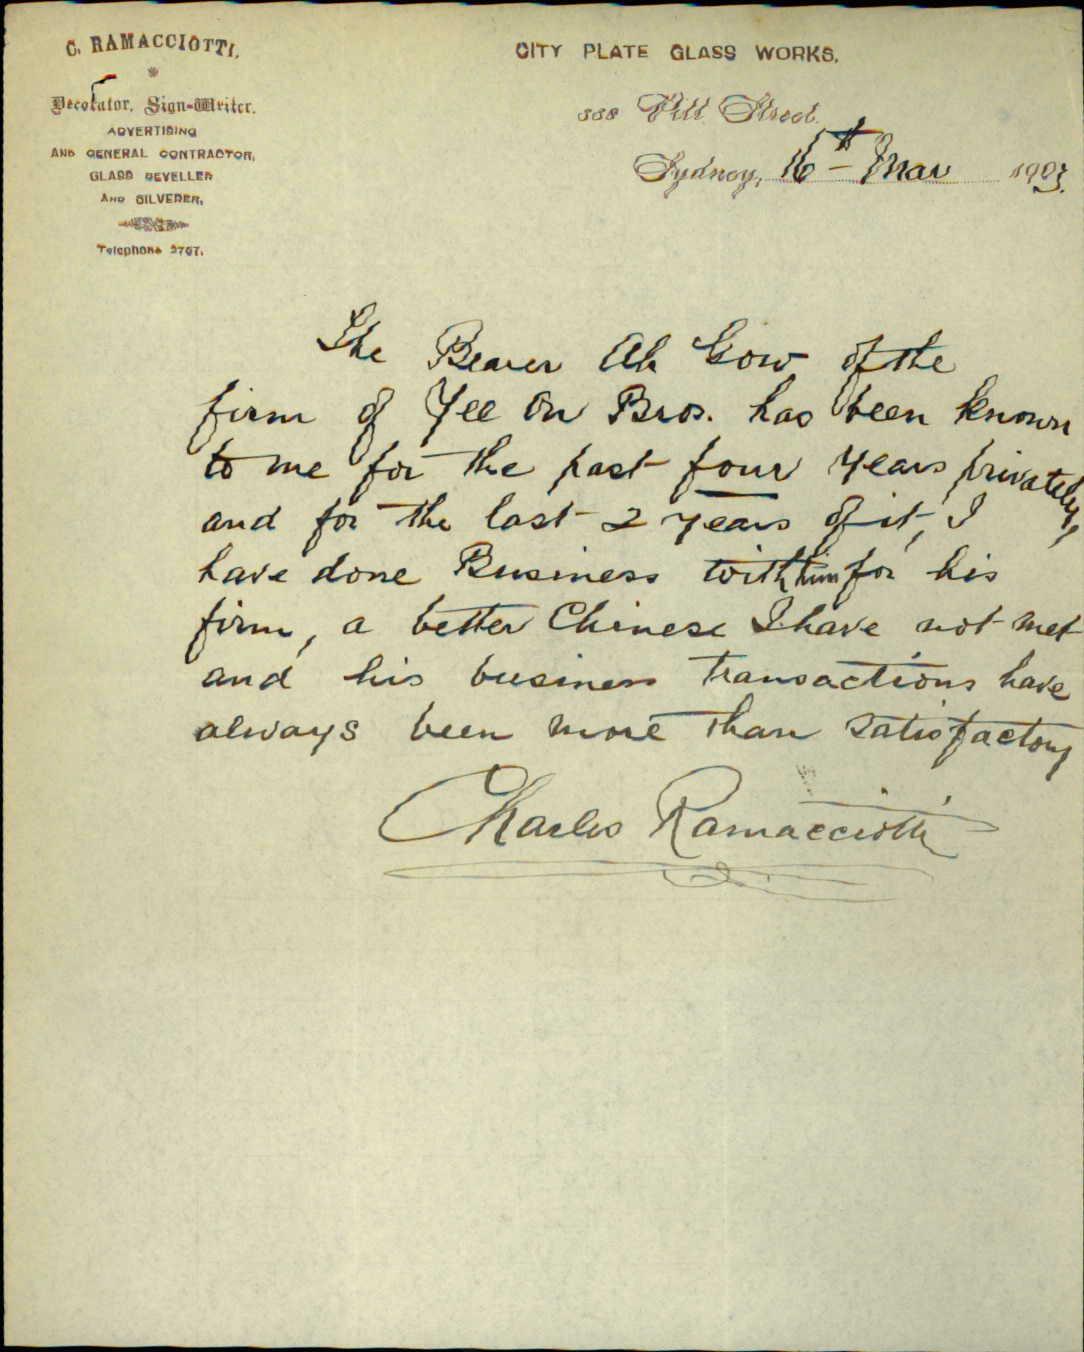 C. RAMACCIOTTI,
Decorator, Sign-Writer.
ADVERTISING
AND GENERAL CONTRACTOR,
GLASS BEVELLER
AND SILVERER,
Telephone 2767.
CITY PLATE GLASS WORKS.
388 Pitt Street.
Sydney, 16th - Mar 1903.
The Bearer Ah Gow of the
firm of Yee On Bros. has been known
to me for the past four years privately,
and for the last 2 years of it, I
have done Business with him for his
firm, a better Chinese I have not met
and his business transactions have
always been more than satisfactory
Charles Ramacciotti